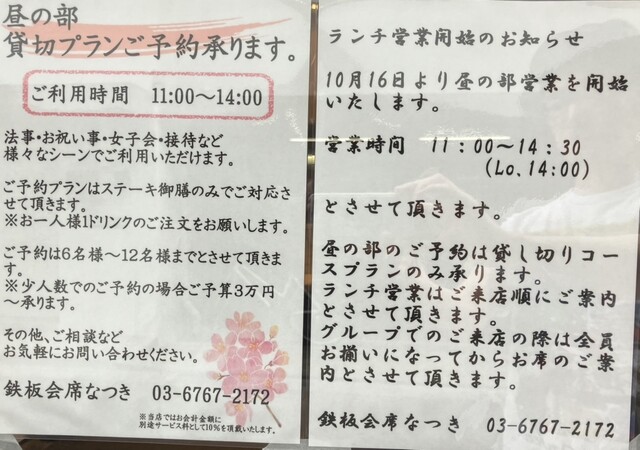 昼の部
貸切プランご予約承ります。
ご利用時間　11:00～14:00
法事・お祝い事・女子会・接待など
様々なシーンでご利用いただけます。
ご予約プランはステーキ御膳のみでご対応さ
せて頂きます。
※お一人様1ドリンクのご注文をお願いします。
ご予約は6名様～12名様までとさせて頂きま
す。
※少人数でのご予約の場合ご予算3万円
～承ります。
その他、ご相談など
お気軽にお問い合わせください。
鉄板会席なつき　03-6767-2172
※当店ではお会計金額に
別途サービス料として10%を頂戴いたします。
ランチ営業開始のお知らせ
10月16日より昼の部営業を開始
いたします。
営業時間　11：00～14：30
(Lo.14:00)
とさせて頂きます。
昼の部のご予約は貸し切りコー
スプランのみ承ります。
ランチ営業はご来店順にご案内
とさせて頂きます。
グループでのご来店の際は全員
お揃いになってからお席のご案
内とさせて頂きます。
鉄板会席なつき　03-6767-2172